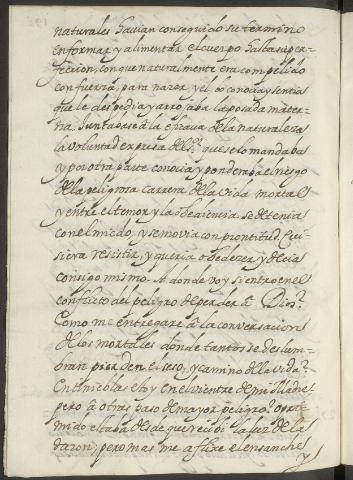 naturales havian conseguido su termino
en formar y alimentar el cuerpo hasta su per-
feccion; con que naturalmente era compelido
con fuerza, para nazer, y el lo conocia y sentia
que le despedia y arrojaba la posada mater-
na. Juntabase à la eficacia de la naturaleza
la voluntad expresa de que se lo mandaba
y por otra parte conocia, y ponderaba el riesgo
de la peligrosa Carrera de la vida mortal
y entre el temor y la obediencia se detenia
con el miedo, y se movia con prontitud. Qui-
siera resistir, y queria obedezer, y decia
consigo mismo. A donde voy si entro en el
conflicto del peligro de perder à Dios?
Como me entregare à la conversacion
de los mortales donde tantos se deslum-
bran pierden el seso, y camino de la vida?
En tinieblas estoy en el vientre de mi Madre;
pero à otras paso de mayor peligro: opri-
mido estaba desde que recibi la luz de la
razon; pero mas me aflixe el ensanche
y